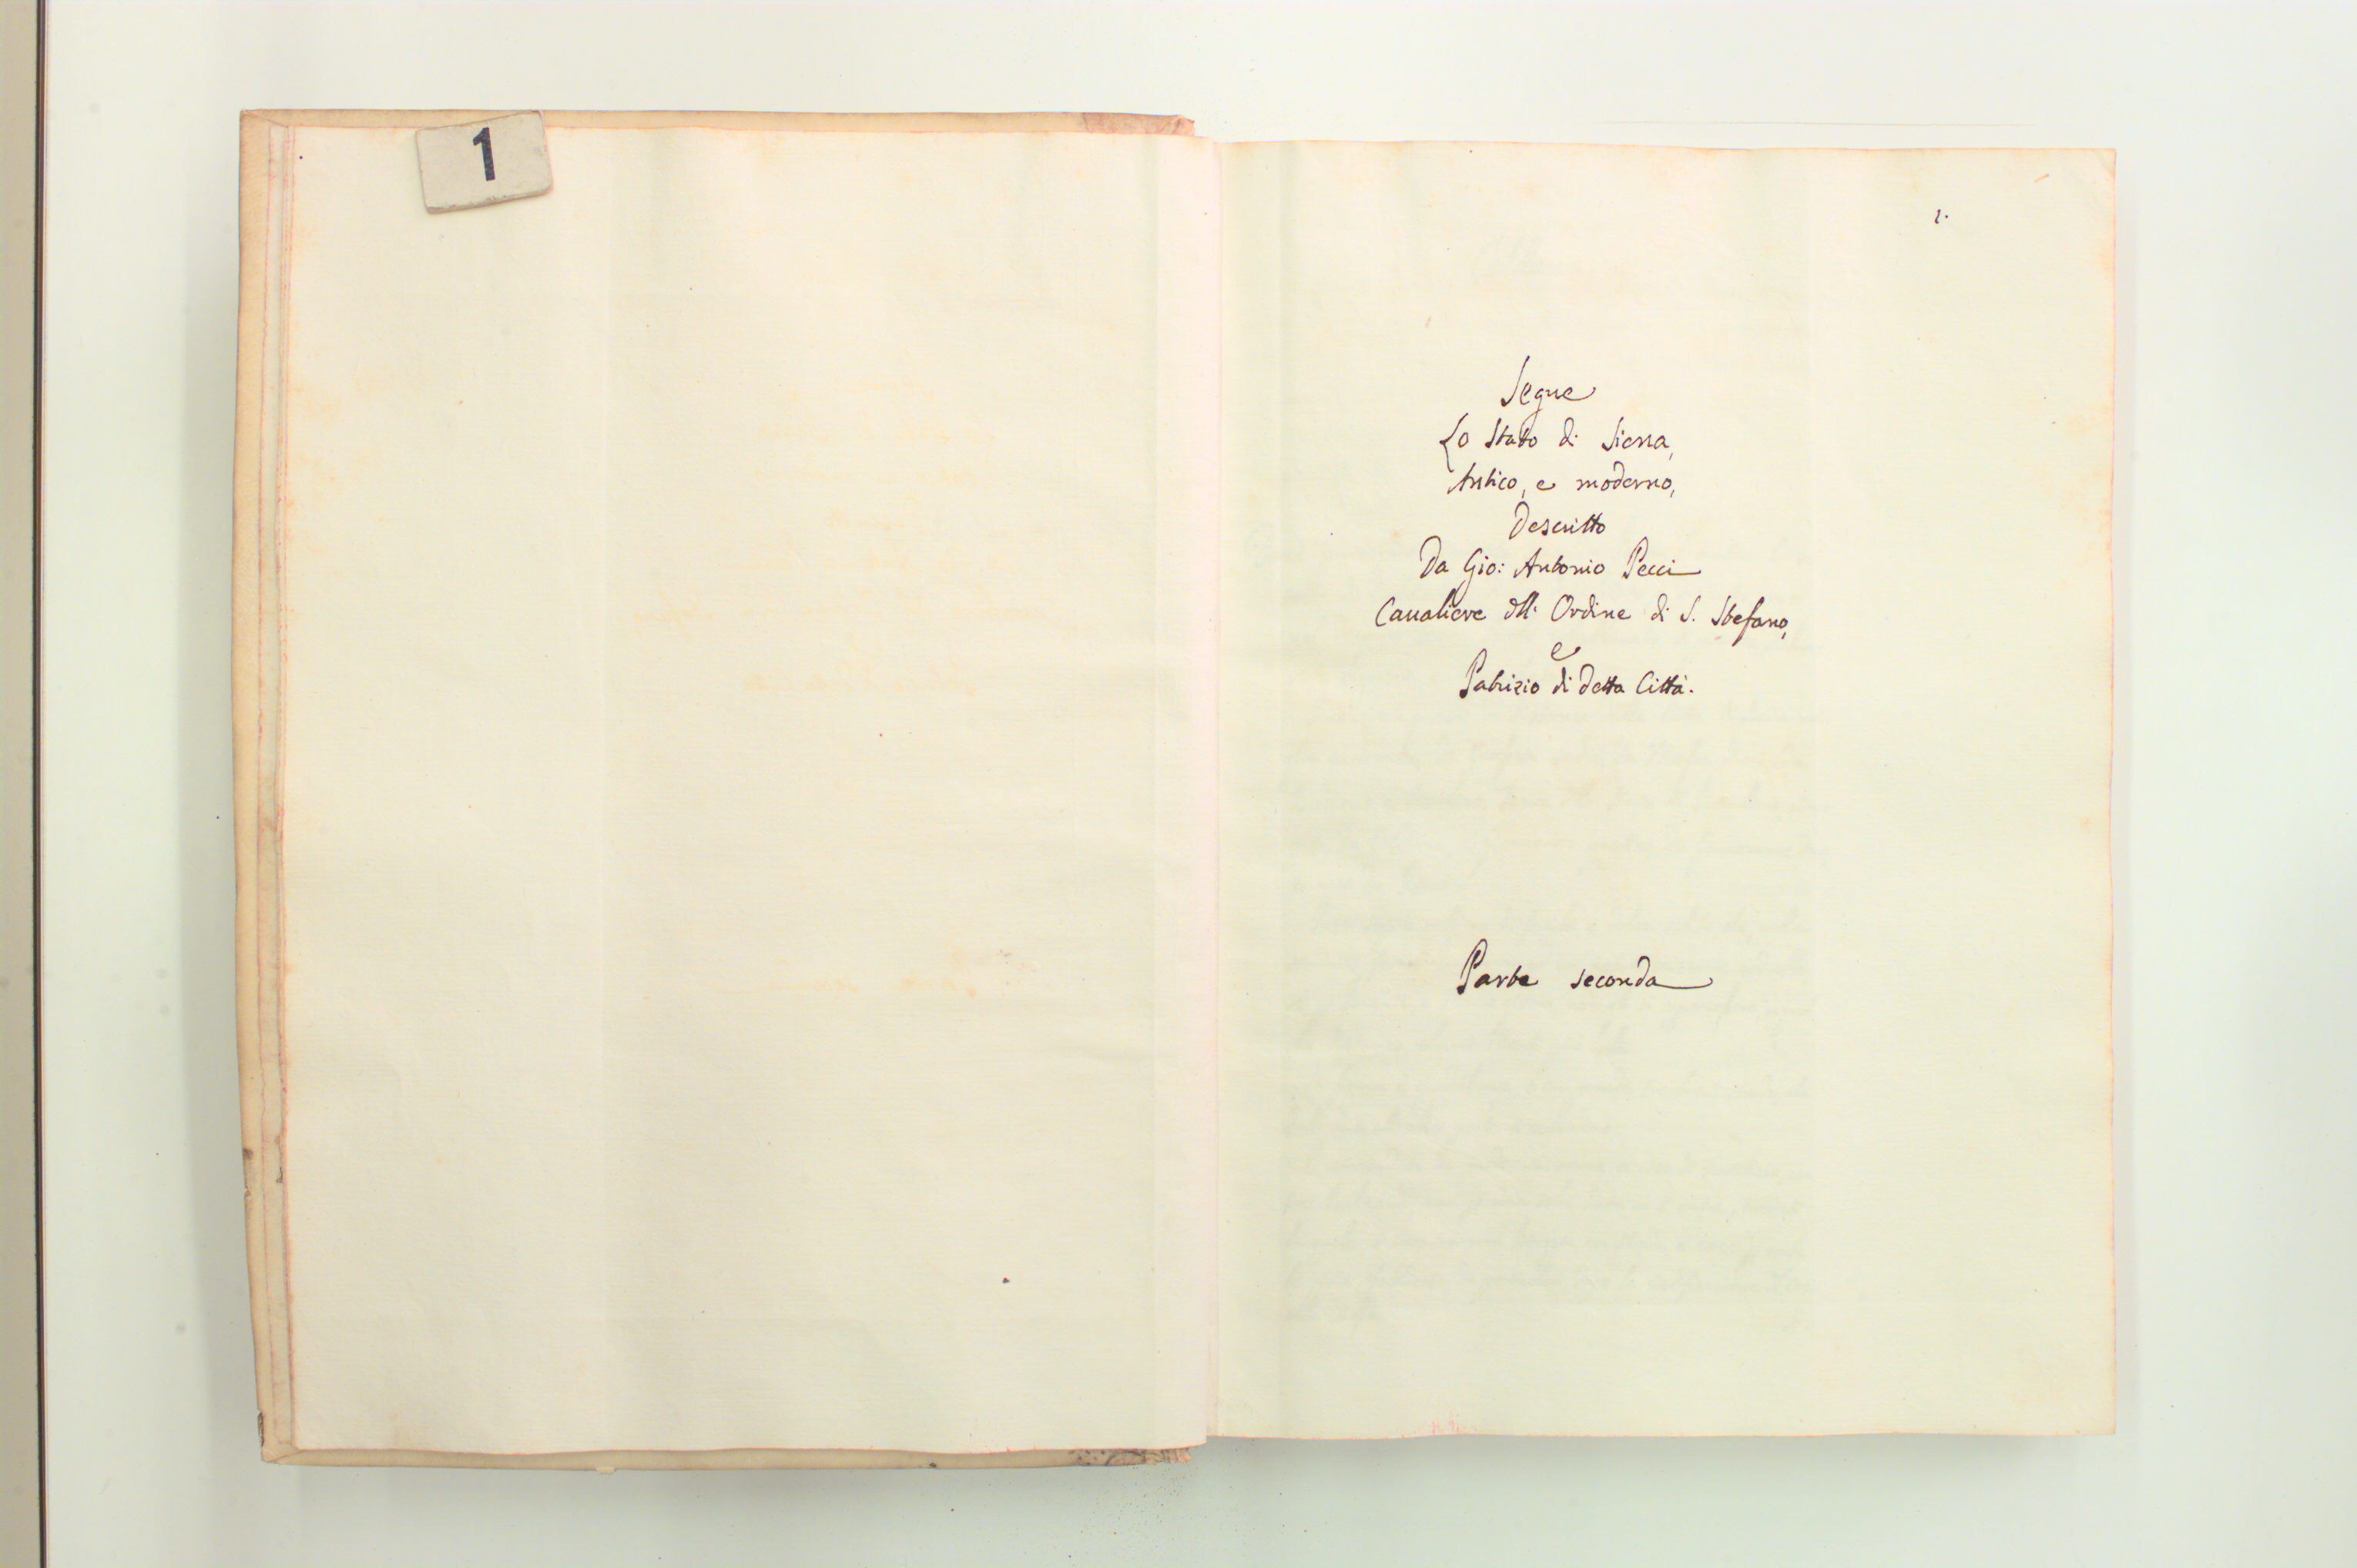 1
1.
Segue
Lo Stato di Siena,
Antico, e moderno,
Descritto
Da Gio: Antonio Pecci
Caualiere dell' Ordine di S. Stefano,
e
Patrizio di detta Città.
Parte seconda